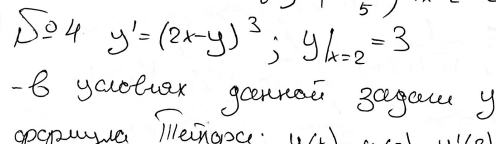 №4 y' = (2x-y)^3; y|x=2 = 3
- в условиях данной задачи у
формула Тейлора: